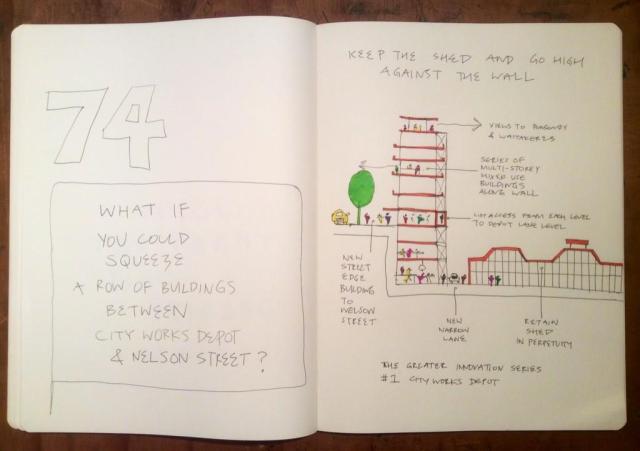 74
WHAT IF
YOU COULD
SQUEEZE
A ROW OF BUILDINGS
BETWEEN
CITY WORKS DEPOT
& NELSON STREET?
KEEP THE SHED AND GO HIGH
AGAINST THE WALL
VIEWS TO PONSONBY
& WAITAKERES
SERIES OF
MULTI-STOREY
MIXED USE
BUILDINGS
ALONG WALL
LIFT ACCESS FROM EACH LEVEL
TO DEPOT LANE LEVEL
NEW
STREET
EDGE
BUILDING
TO
NELSON
STREET
NEW
NARROW
LANE
RETAIN
SHED
IN PERPETUITY
THE GREATER INNOVATION SERIES
#1 CITY WORKS DEPOT